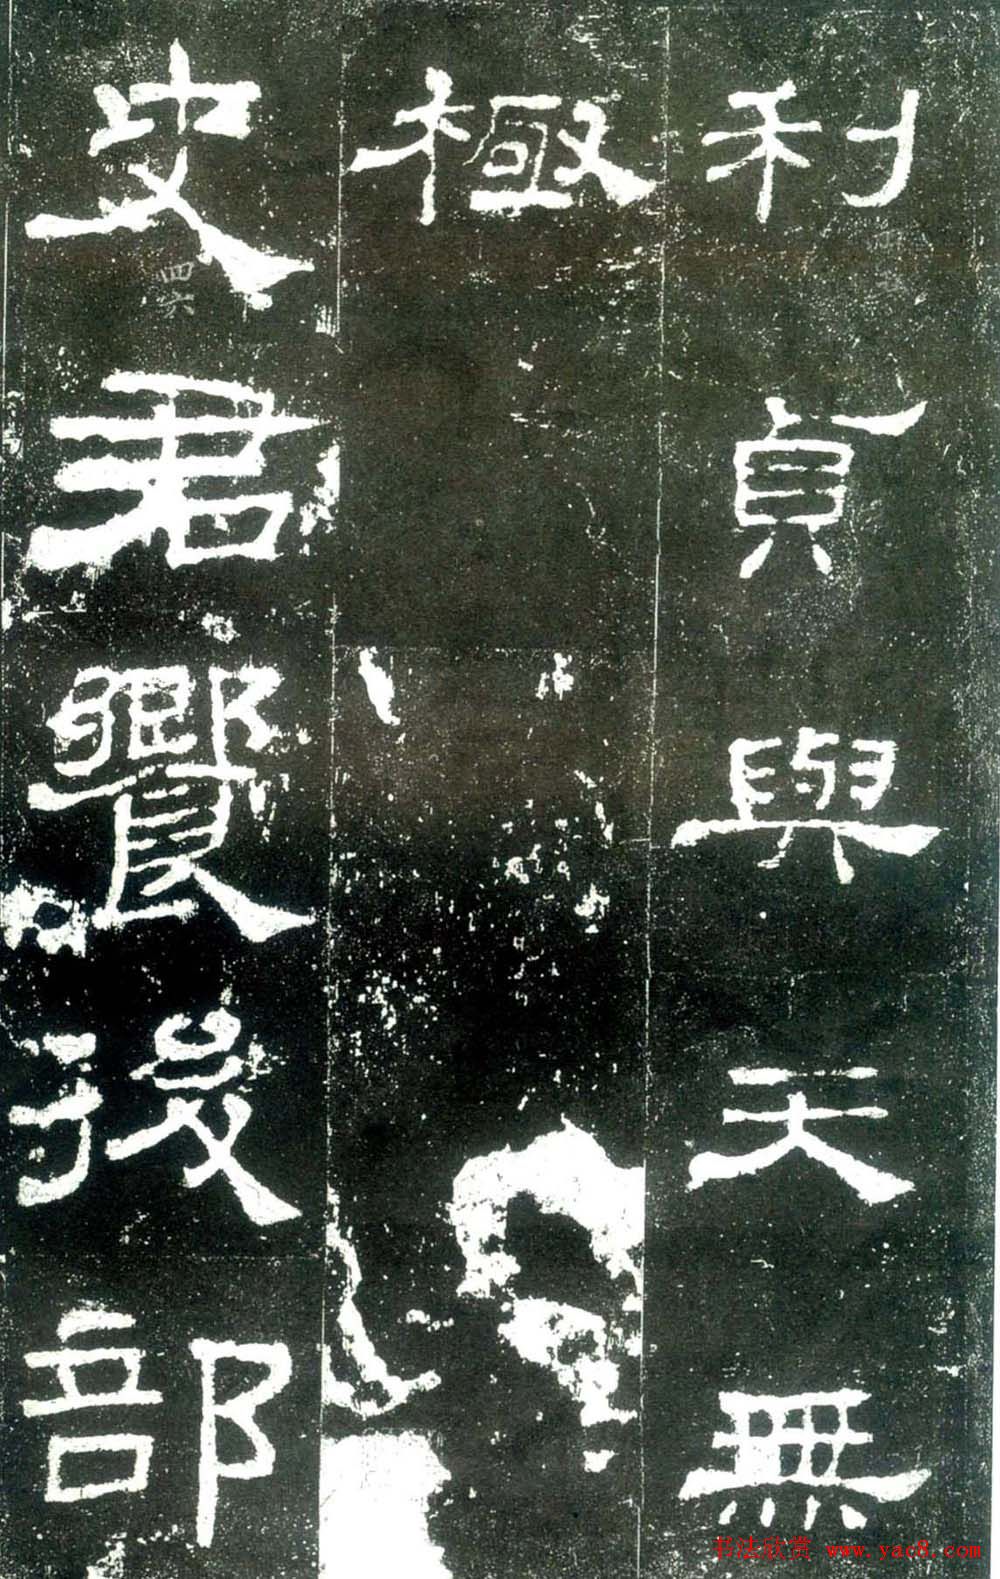 利貞與天無
極
史君饗後部
书法欣赏 www.yac8.com